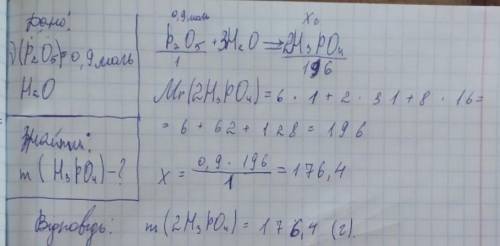 Дано:
ν(P₂O₅) = 0,9 моль
H₂O
Знайти:
m (H₃PO₄) - ?
0,9 моль X₂
P₂O₅ + 3H₂O ⟹ 2H₃PO₄
1 196
Mr(2H₃PO₄) = 6 · 1 + 2 · 31 + 8 · 16 =
= 6 + 62 + 128 = 196
X = 0,9 · 196 / 1 = 176,4
Відповідь: m (2H₃PO₄) = 176,4 (г).